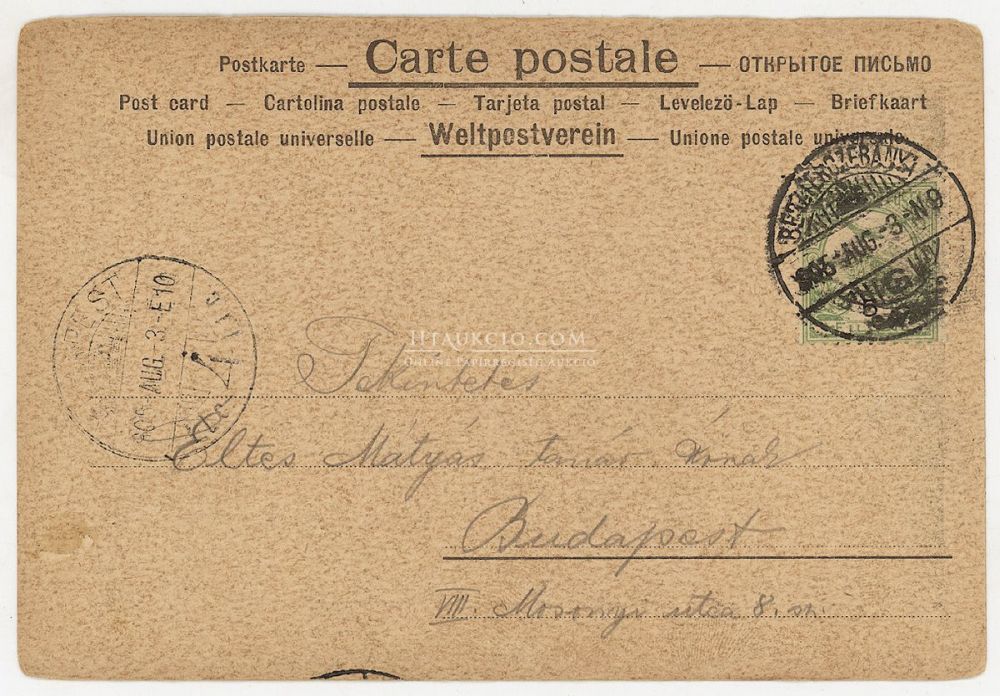 Postkarte — Carte postale — ОТКРЫТОЕ ПИСЬМО
Post card — Cartolina postale — Tarjeta postal — Levelező-Lap — Briefkaart
Union postale universelle — Weltpostverein — Unione postale
905-AUG.-3-N9
PEST
AUG. 3.-E10
HTAUKCIO.COM
ONLINE PAPÍRRÉGISÉG AUKCIÓ
Tekintetes
Éltes Mátyás tanár úrnak
Budapest
VIII. Mosonyi utca 8. sz.